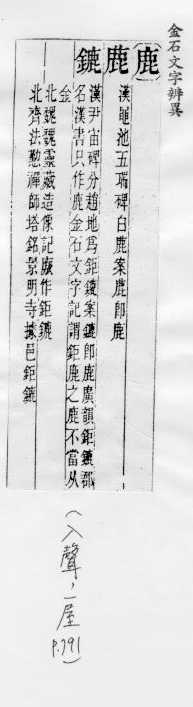 金石文字辨異
鹿
鹿
漢黽池五瑞碑白鹿案鹿即鹿
鏕
漢尹宙碑分趙地為鉅鏕案鏕即鹿廣韻鉅鏕郡
名漢書只作鹿金石文字記謂鉅鹿之鹿不當从
金
北魏魏靈藏造像記厳作鉅鏕
北齊法懃禪師塔銘景明寺 邑鉅鏕
(入聲,一屋
P.791)